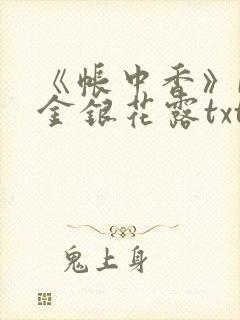 《帐中香》
金银花露txt
鬼上身